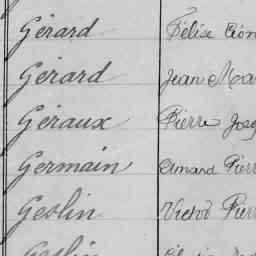 Gérard Félise Léon
Gérard Jean Ma
Géraux Pierre Jos
Germain Amand Pierr
Geslin Victor Pier
Geslin